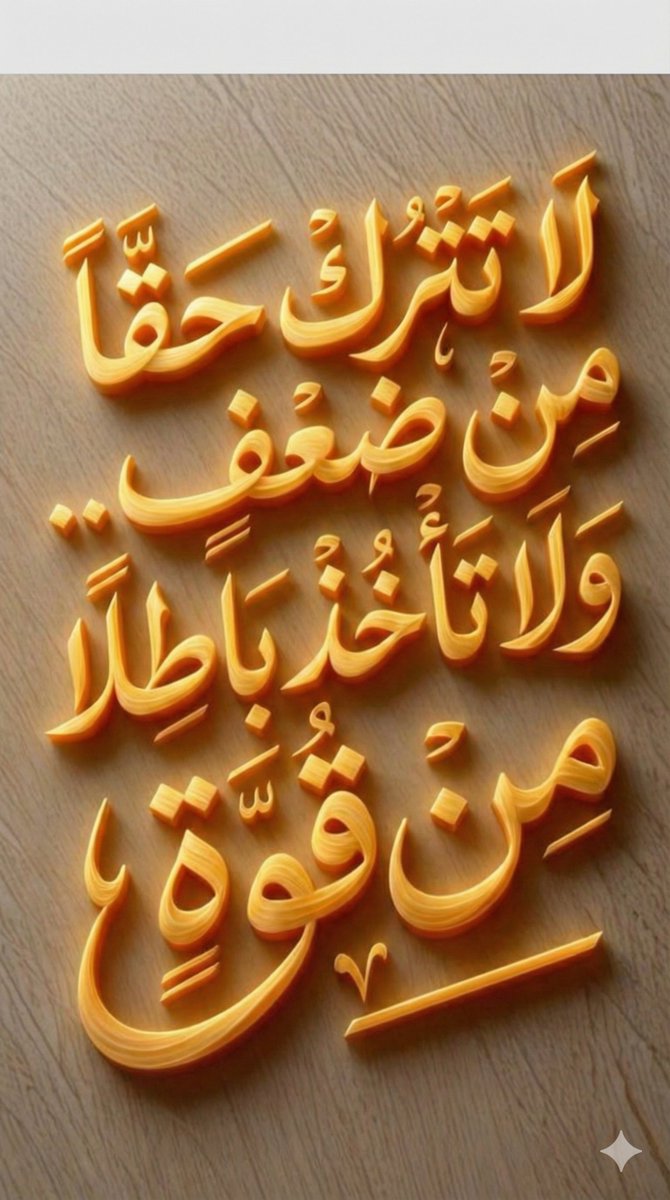 لَا تَتْرُكْ حَقّاً
مِنْ ضَعْفٍ..
وَلَا تَأْخُذْ بَاطِلًا
مِنْ قُوَّةٍ